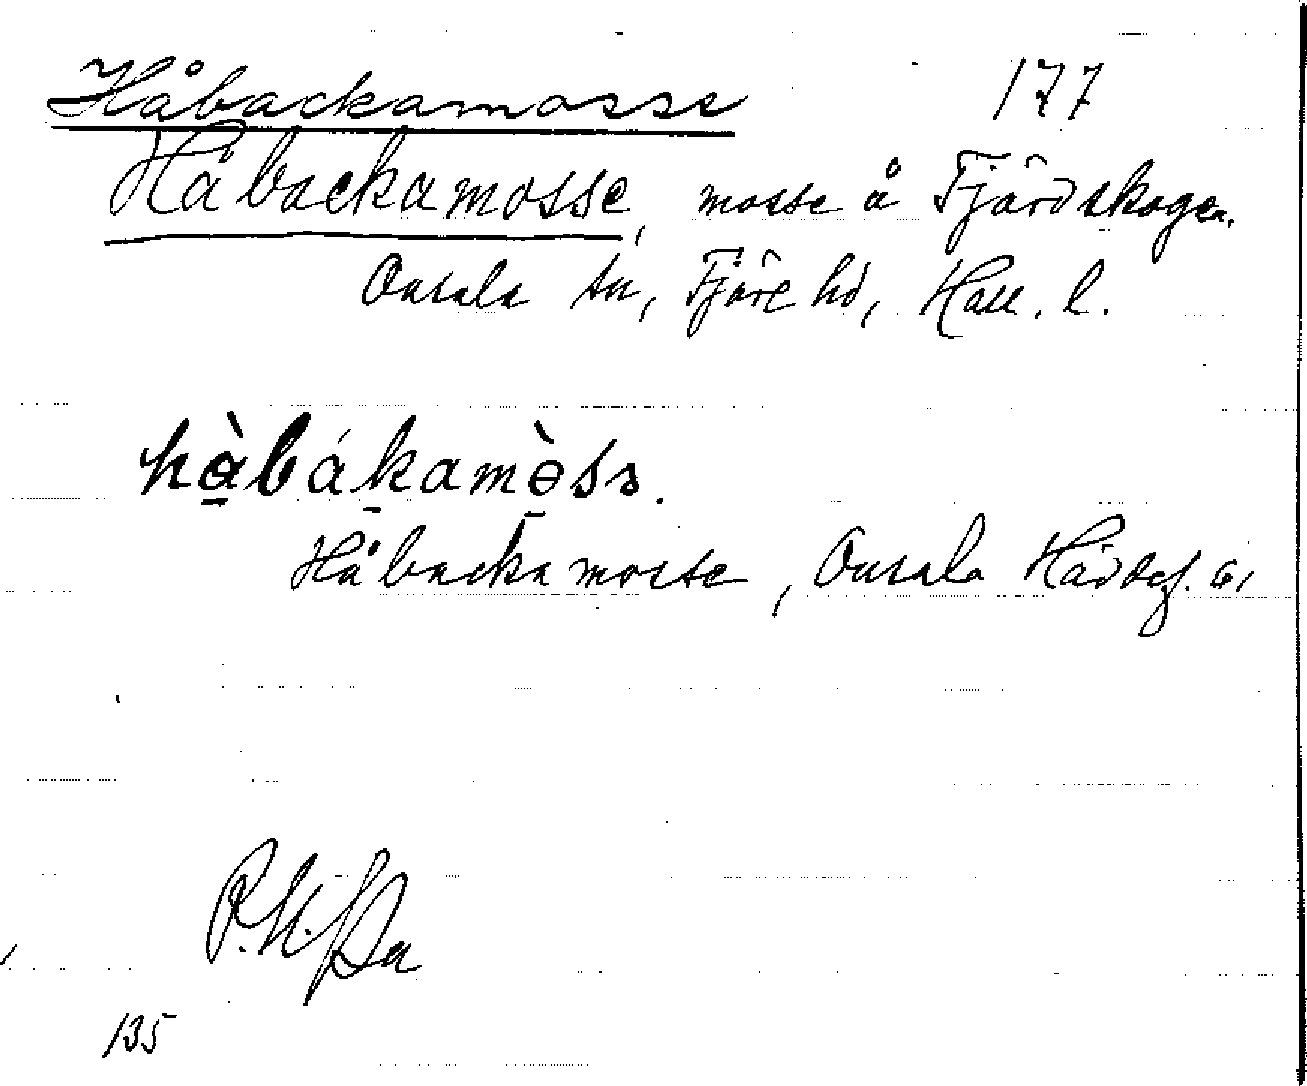 Håbackamosse 177
Håbackamosse, mosse å Fjärdskogen.
Onsala sn, Fjäre hd, Hall. l.
hàbákamòss.
Håbackamosse, Onsala Hävdegf. 61
P.H.
135